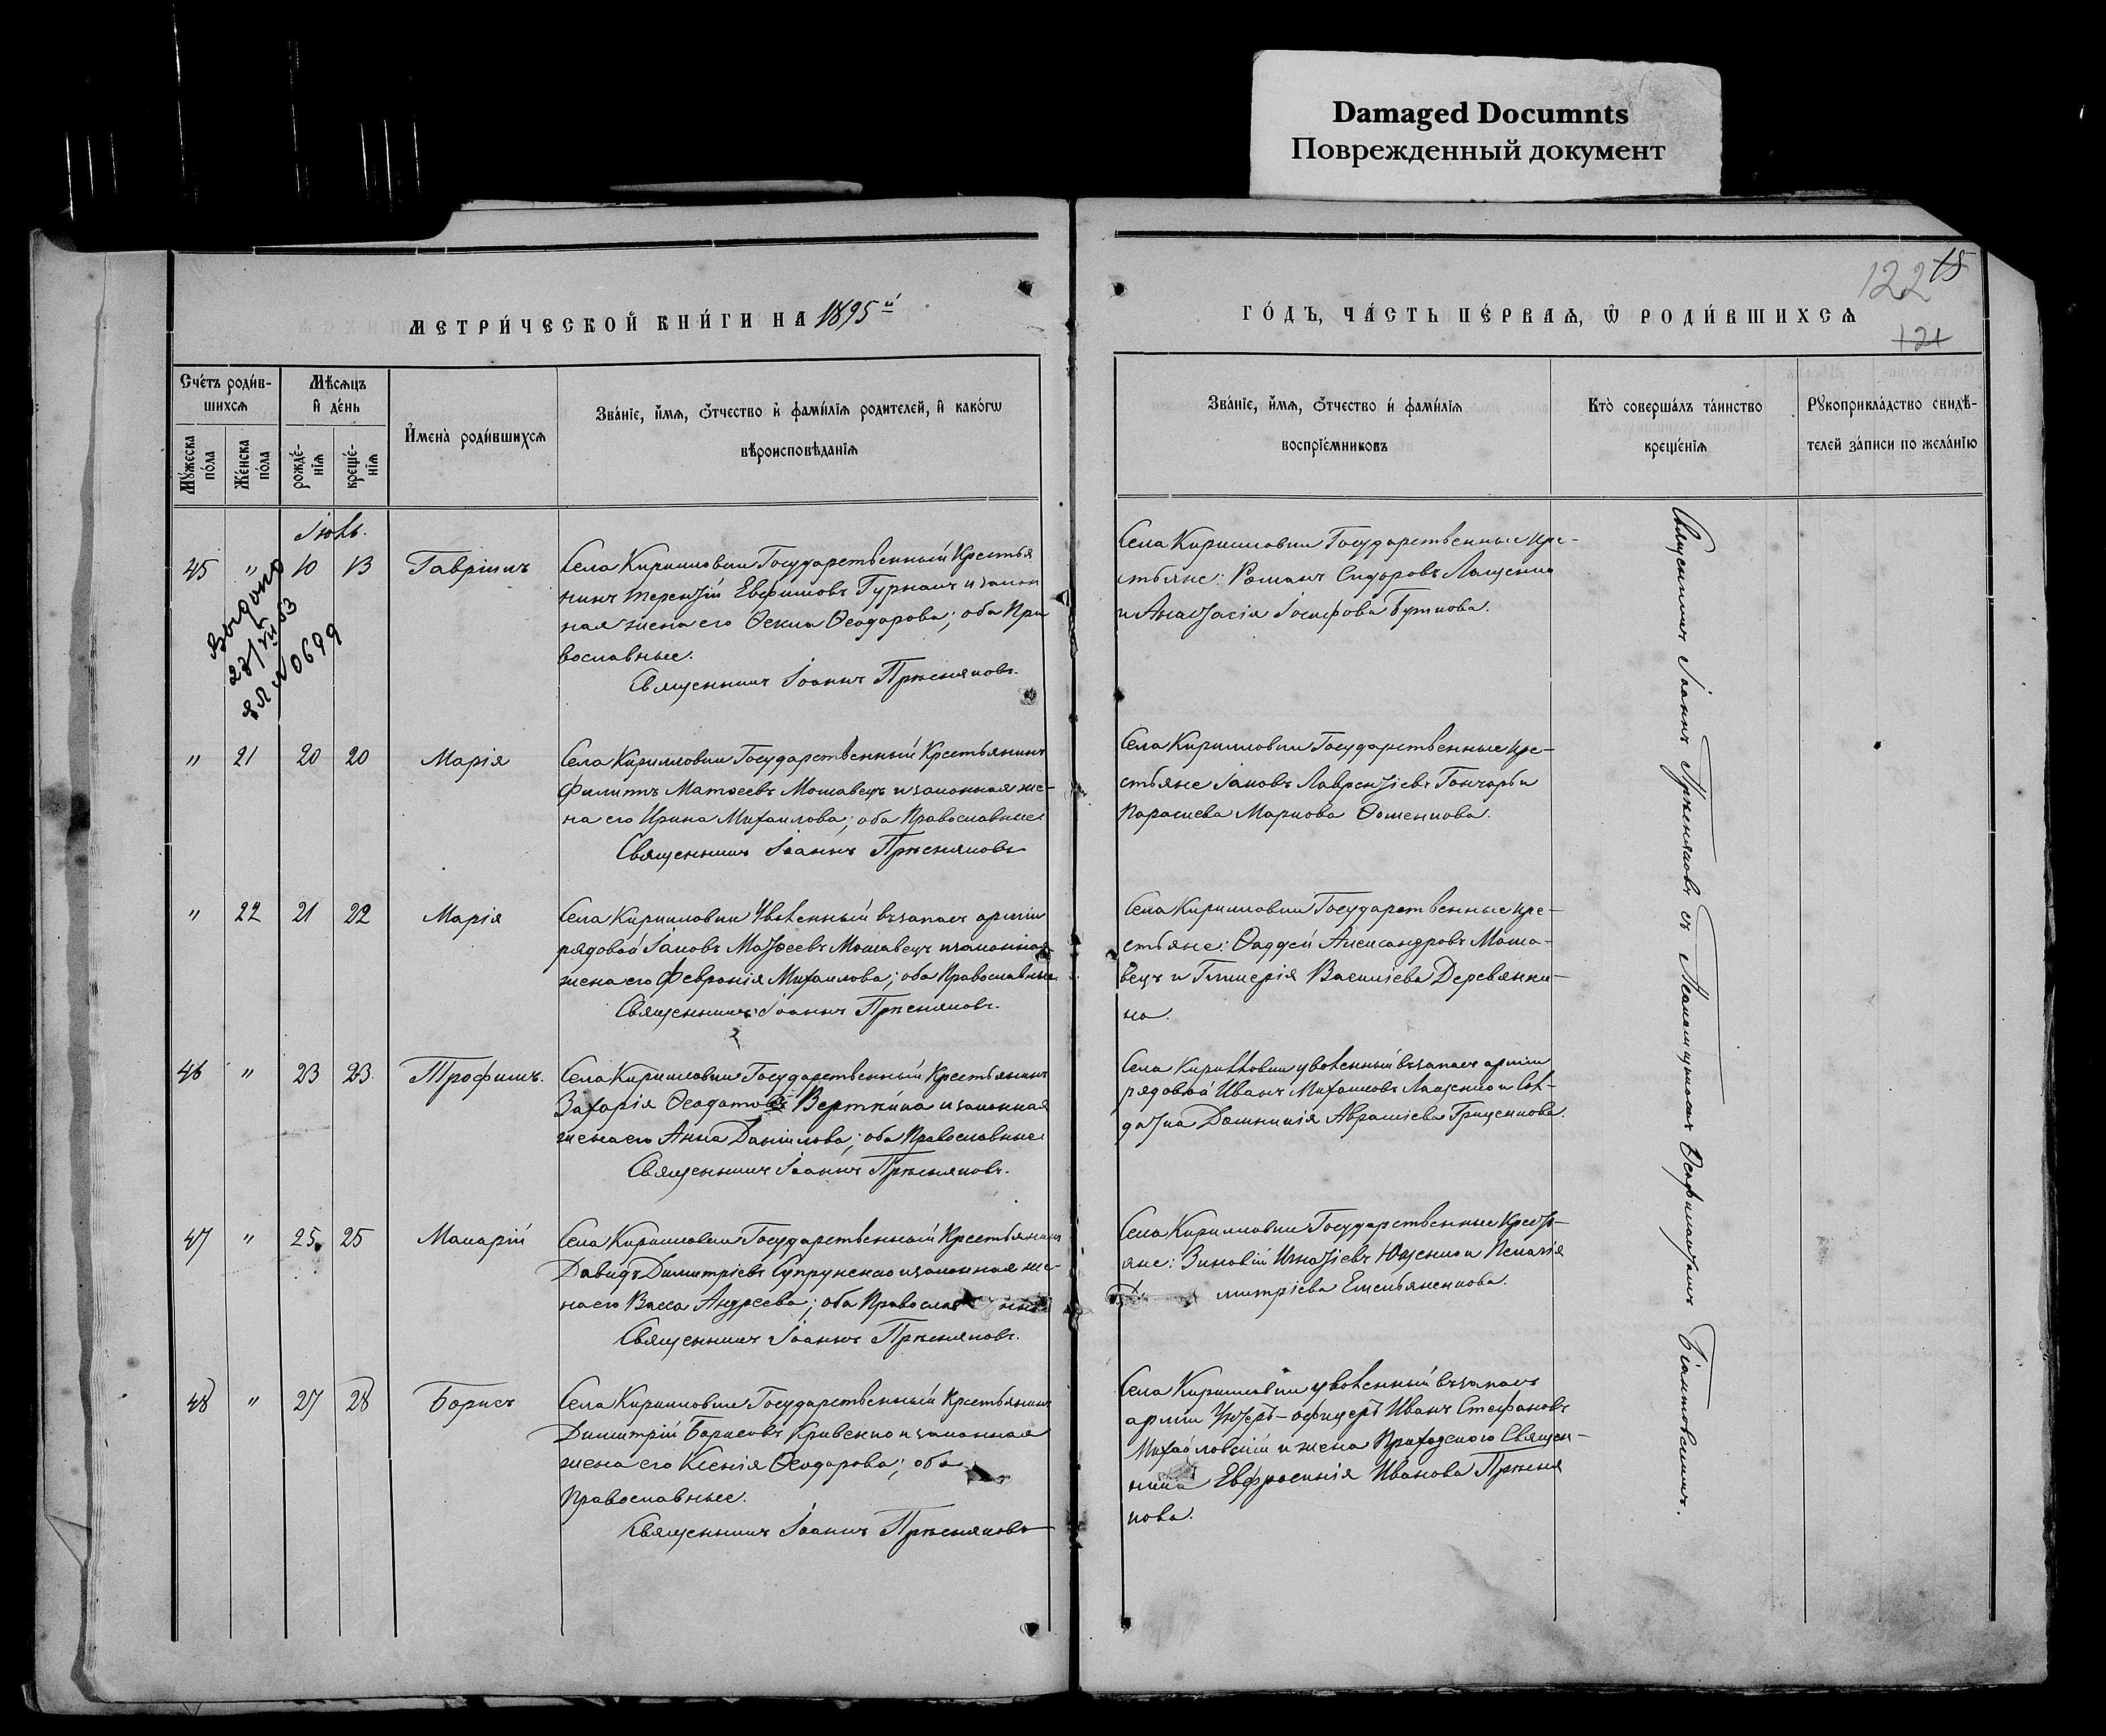 Damaged Documnts
Поврежденный документ
122 15
121
МЕТРИ́ЧЕСКОЙ КНИ́ГИ НА 1895й
ГО́ДЪ, ЧА́СТЬ ПЕ́РВАѦ, Ѡ҆ РОДИ́ВШИХСѦ
Сче́тъ роди́в-
шихсѧ
Мꙋ́жеска
по́ла
Же́нска
по́ла
Мѣ́сѧцъ
и҆ де́нь
рожде́-
нїѧ
креще́-
нїѧ
И҆мена̀ роди́вшихсѧ
Зва́нїе, и҆́мѧ, ѻ҆́тчество и҆ фами́лїѧ родителей, и҆ како́гѡ
вѣроисповѣ́данїѧ
Зва́нїе, и҆́мѧ, ѻ҆́тчество и҆ фами́лїѧ
воспрїе́мниковъ
Кто̀ соверша́лъ та́инство
креще́нїѧ
Рꙋкоприкла́дство свидѣ́-
телей за́писи по жела́нїю
Іюль.
45 " 10 13 Гавріилъ
Села Кирилловки Государственный Крестья
нинъ Терентій Евфимовъ Гурналъ и закон
ная жена его Ѳекла Ѳеодорова; оба Пра
вославные.
Священникъ Іоаннъ Прѣсняковъ.
Села Кирилловки Государственные кре-
стьяне: Романъ Сидоровъ Лащенко
и Анастасія Іосифова Буткова.
Выдано
27/VII 53
ЯЛ № 0699
" 21 20 20 Марія
Села Кирилловки Государственный Крестьянинъ
Филиппъ Матѳеевъ Мошавецъ и законная же-
на его Ирина Михаилова; оба Православные
Священникъ Іоаннъ Прѣсняковъ
Села Кирилловки Государственные кре-
стьяне Іаковъ Лаврентіевъ Гончаръ и
Параскева Маркова Ѳоменкова.
" 22 21 22 Марія
Села Кирилловки Уволенный въ запасъ арміи
рядовой Іаковъ Матѳеевъ Мошавецъ и законная
жена его Февронія Михаилова; оба Православные
Священникъ Іоаннъ Прѣсняковъ.
Села Кирилловки Государственные кре-
стьяне: Ѳаддей Александровъ Моша-
вецъ и Гликерія Василіева Деревянки-
на.
46 " 23 23 Трофимъ.
Села Кирилловки Государственный Крестьянинъ
Захарія Ѳеодотовъ Верткина и законная
жена его Анна Даніилова; оба Православные
Священникъ Іоаннъ Прѣсняковъ.
Села Кирилловки уволенный въ запасъ арміи
рядовой Иванъ Михаиловъ Лащенко и Сол-
датка Домникія Авраміева Гриценкова.
47 " 25 25 Макарій
Села Кирилловки Государственный Крестьянинъ
Давидъ Димитріевъ Супруненко и законная же-
на его Васса Андреева; оба Православные
Священникъ Іоаннъ Прѣсняковъ.
Села Кирилловки Государственные Кресть-
яне: Зиновій Игнатіевъ Ющенко и Пелагія
митріева Емельяненкова.
48 " 27 28 Борисъ
Села Кирилловки Государственный Крестьянинъ
Димитрій Борисовъ Кривенко и законная
жена его Ксенія Ѳеодорова; оба
Православные.
Священникъ Іоаннъ Прѣсняковъ
Села Кирилловки уволенный въ запасъ
арміи Унтеръ-офицеръ Иванъ Стефановъ
Михайловскій и жена Приходского Священ-
ника Евфросинія Иванова Прѣсня
кова.
Священникъ Іоаннъ Прѣсняковъ съ Псаломщикомъ Ѳеофилактомъ Біантовскимъ.